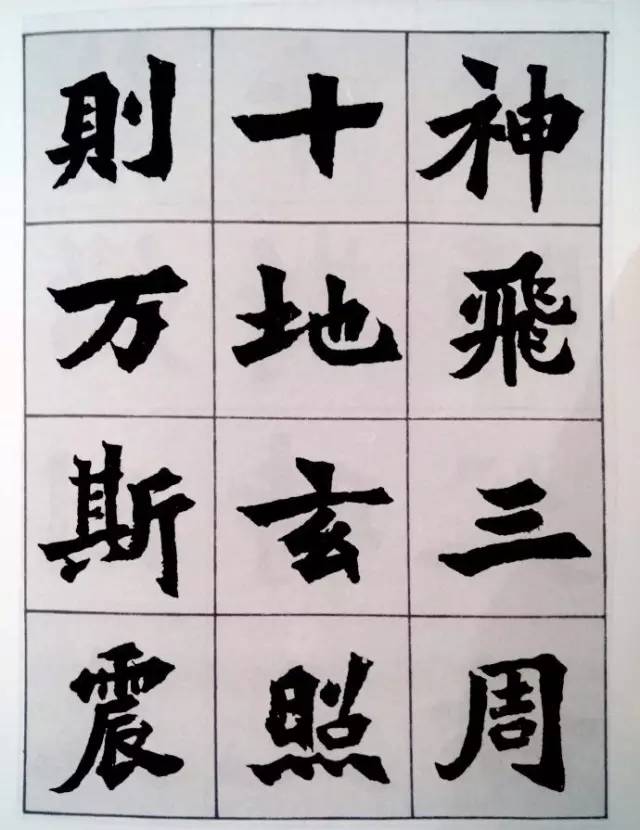 神飛三周
十地玄照
則万斯震